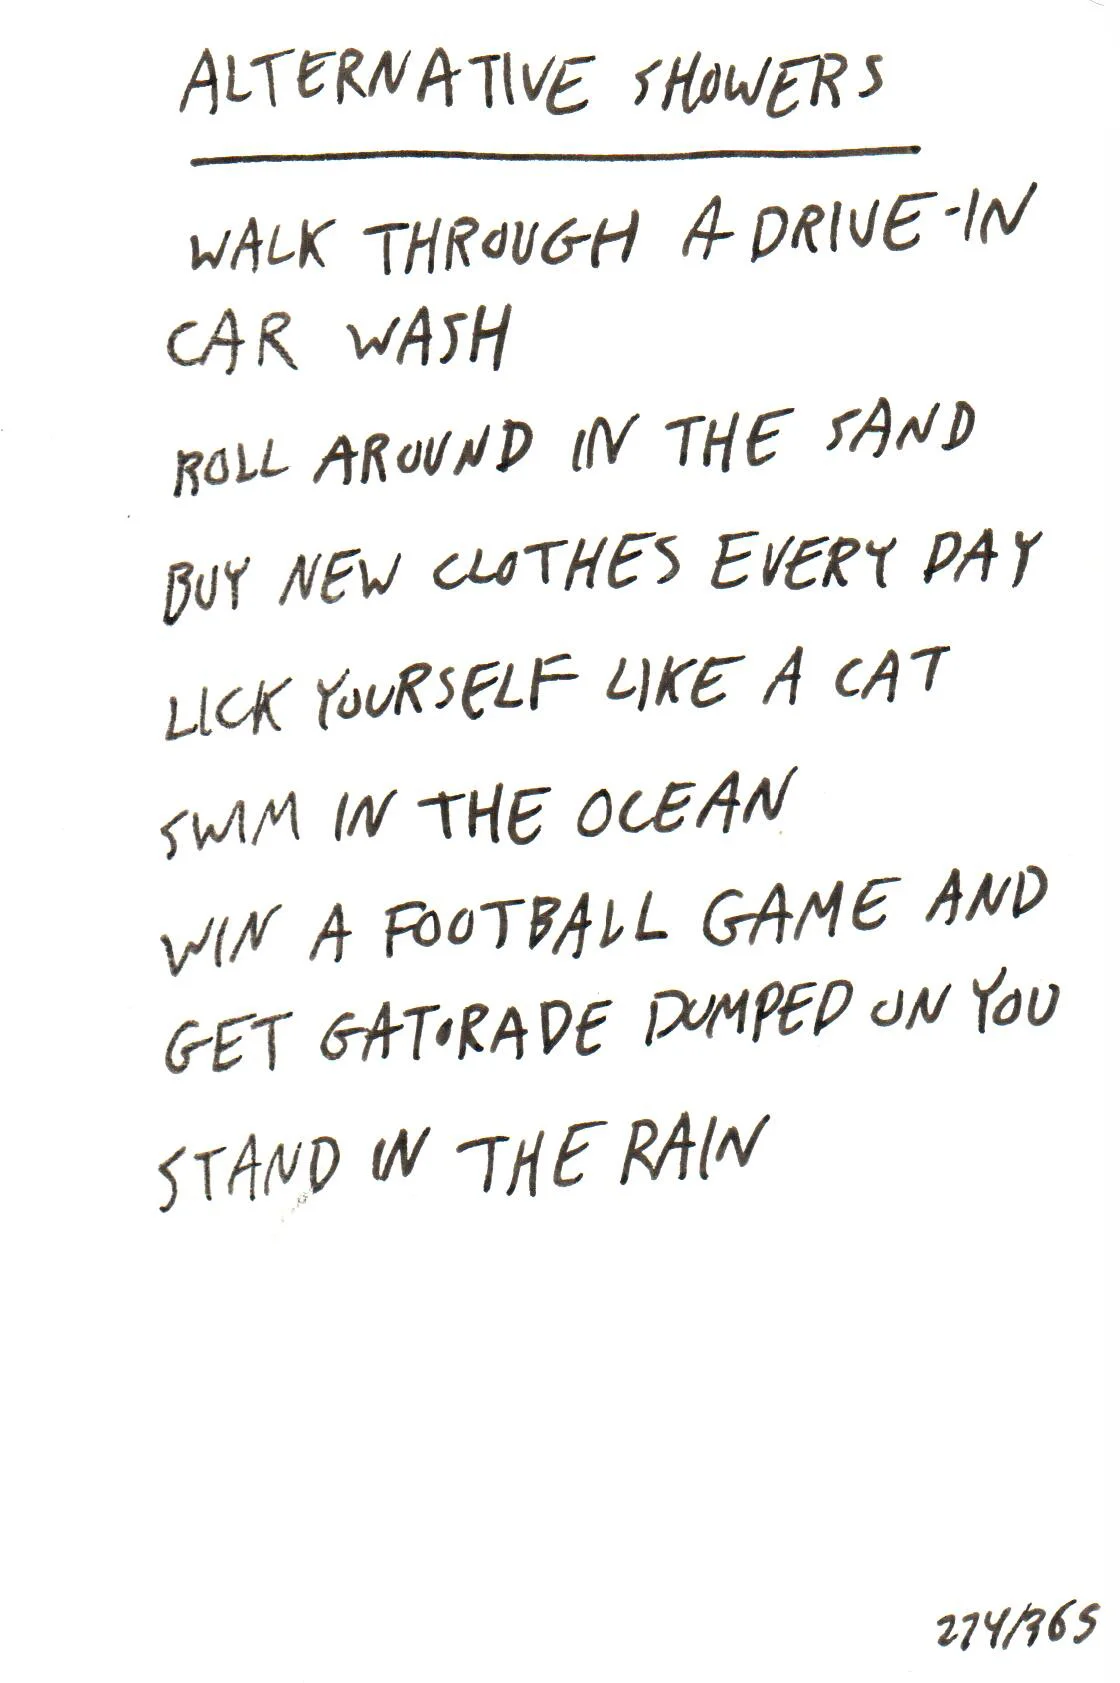 ALTERNATIVE SHOWERS
WALK THROUGH A DRIVE-IN
CAR WASH
ROLL AROUND IN THE SAND
BUY NEW CLOTHES EVERY DAY
LICK YOURSELF LIKE A CAT
SWIM IN THE OCEAN
WIN A FOOTBALL GAME AND
GET GATORADE DUMPED ON YOU
STAND IN THE RAIN
274/365